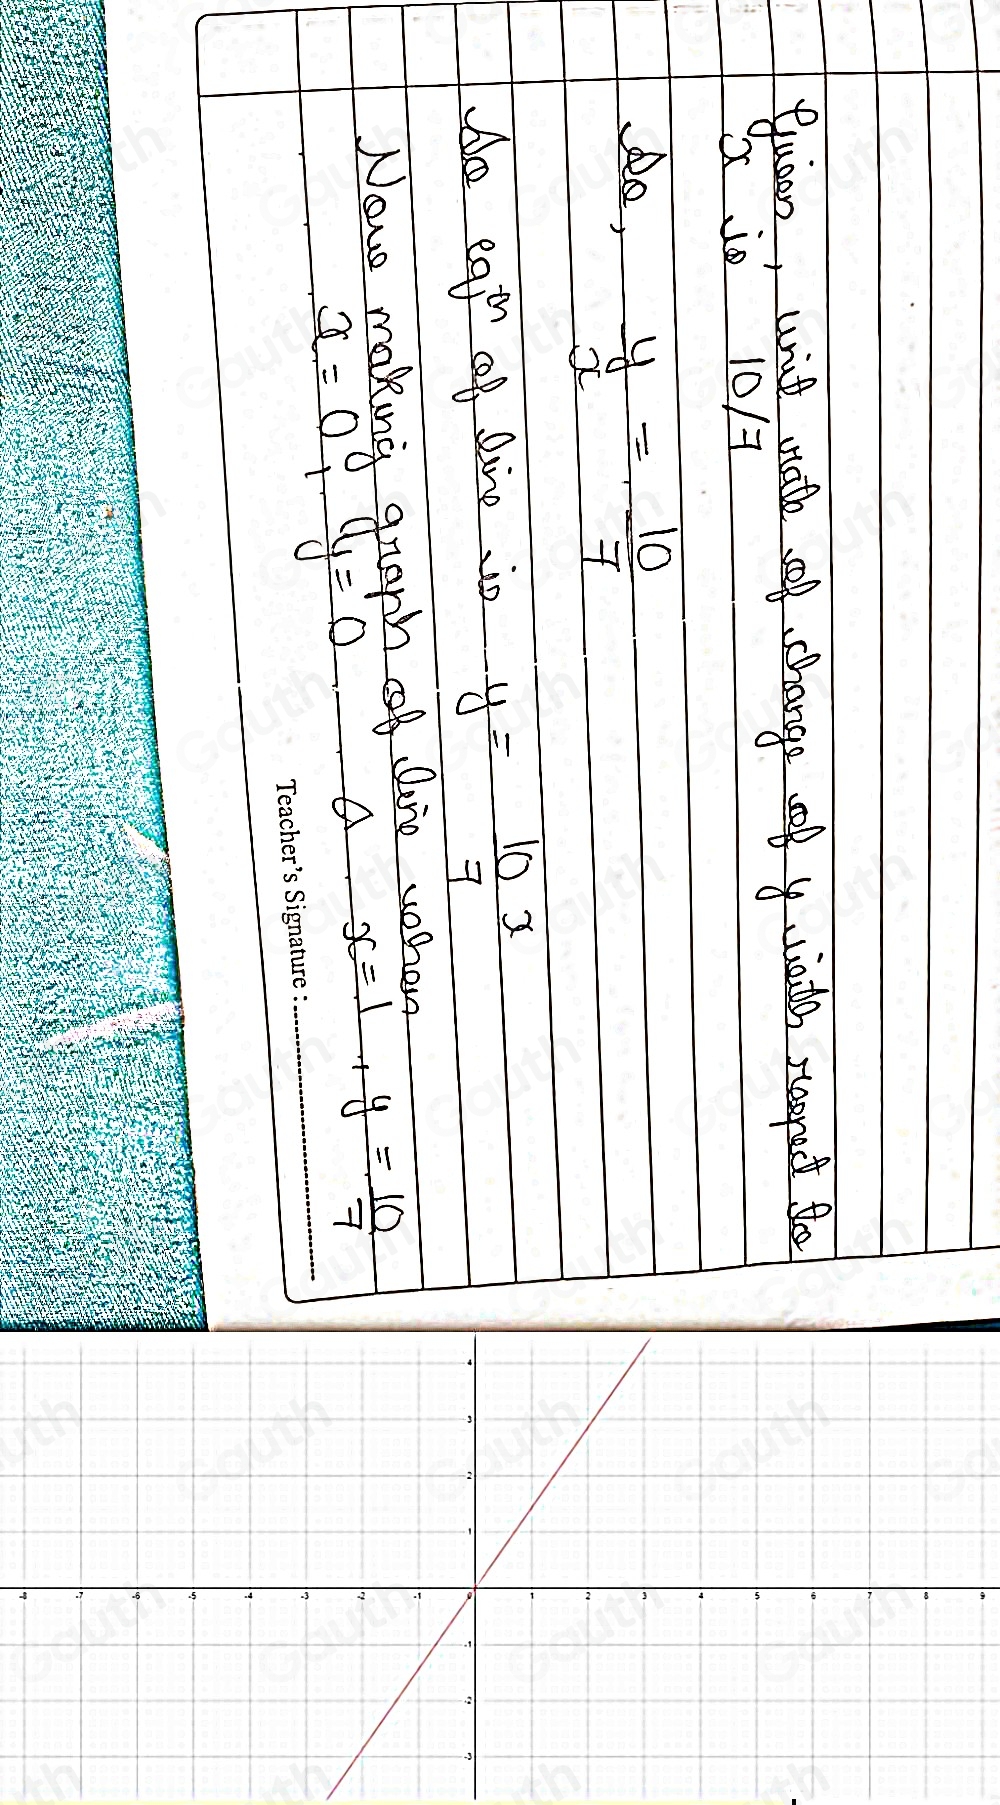 Given, unit rate of change of y with respect to
x is 10/7
So, y/x = 10/7
So eqⁿ of line is y = 10/7 x
Now making graph of line when
x = 0, y = 0 & x = 1, y = 10/7
Teacher's Signature :
4
3
2
1
-8 -7 -6 -5 -4 -3 -2 -1 0 1 2 3 4 5 6 7 8 9
-1
-2
-3
Gauth